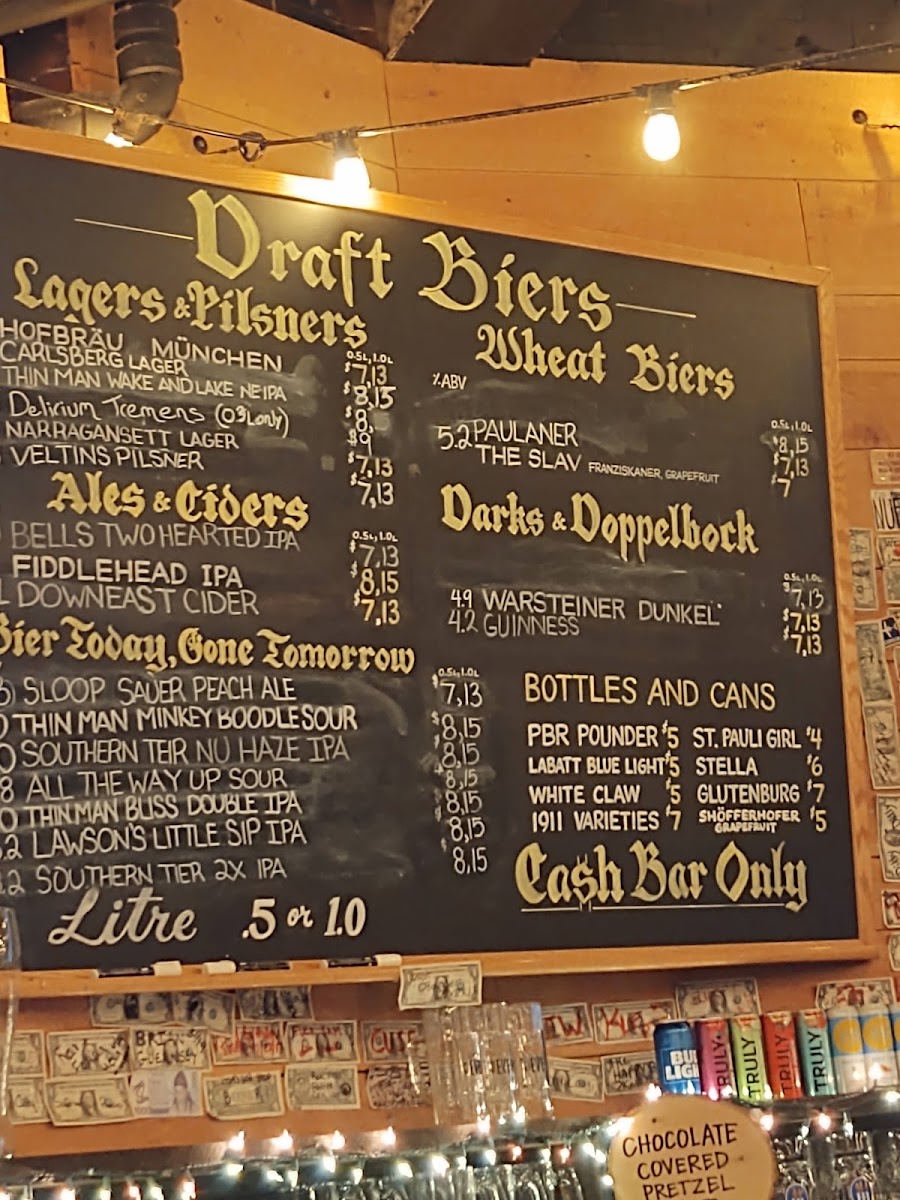 Draft Biers
Lagers & Pilsners
0.5L, 1.0L
HOFBRÄU MÜNCHEN $7,13
CARLSBERG LAGER $8,13
THIN MAN WAKE AND LAKE NEIPA $8,15
Delirium Tremens (03Lonly) $9
NARRAGANSETT LAGER $7,13
VELTINS PILSNER $7,13
Ales & Ciders
0.5L, 1.0L
BELLS TWO HEARTED IPA $7,13
FIDDLEHEAD IPA $8,15
DOWNEAST CIDER $7,13
Bier Today, Gone Tomorrow
0.5L, 1.0L
SLOOP SAUER PEACH ALE $7,13
THIN MAN MINKEY BOODLE SOUR $8,15
SOUTHERN TEIR NU HAZE IPA $8,15
8 ALL THE WAY UP SOUR $8,15
THIN MAN BLISS DOUBLE IPA $8,15
2 LAWSON'S LITTLE SIP IPA $8,15
SOUTHERN TIER 2X IPA $8,15
Litre .5 or 1.0
Wheat Biers
%ABV
0.5L, 1.0L
5.2 PAULANER $8,15
$7,13
THE SLAV FRANZISKANER, GRAPEFRUIT $7
Darks & Doppelbock
0.5L, 1.0L
$7,13
4.9 WARSTEINER DUNKEL $7,13
4.2 GUINNESS $7,13
BOTTLES AND CANS
PBR POUNDER $5 ST. PAULI GIRL $4
LABATT BLUE LIGHT $5 STELLA $6
WHITE CLAW $5 GLUTENBURG $7
1911 VARIETIES $7 SHÖFFERHOFER GRAPEFRUIT $5
Cash Bar Only
BUD LIGHT
TRULY
TRULY
TRULY
TRULY
CHOCOLATE
COVERED
PRETZEL